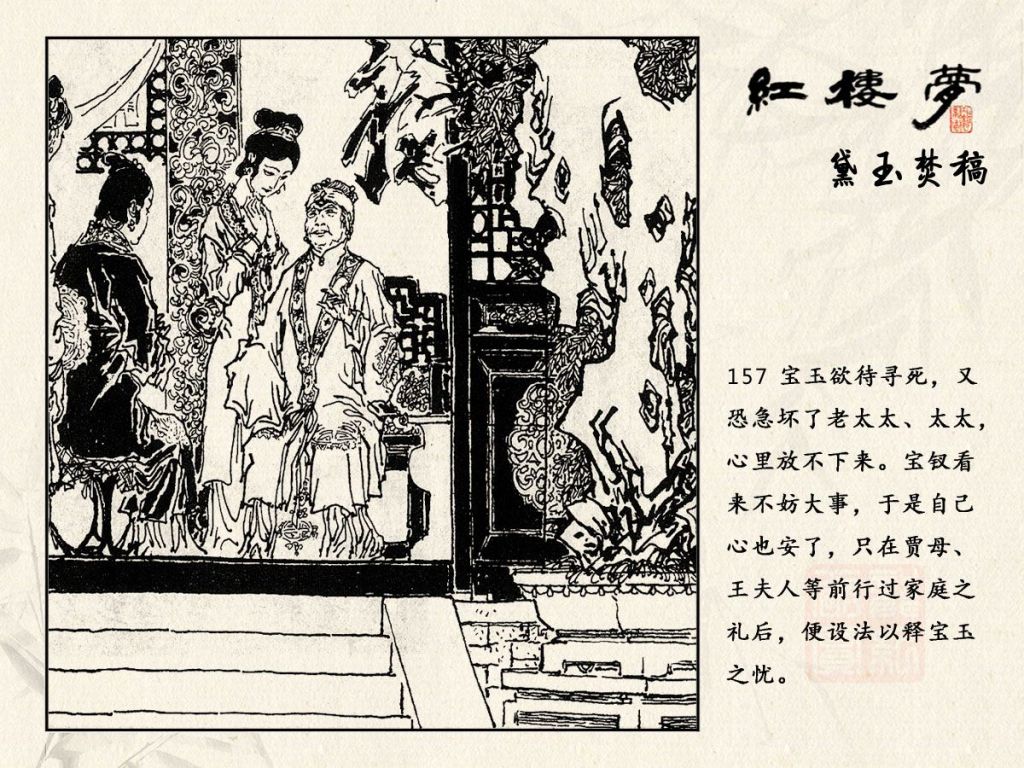 紅樓夢
黛玉焚稿
157 宝玉欲待寻死，又
恐急坏了老太太、太太，
心里放不下来。宝钗看
来不妨大事，于是自己
心也安了，只在贾母、
王夫人等前行过家庭之
礼后，便设法以释宝玉
之忧。